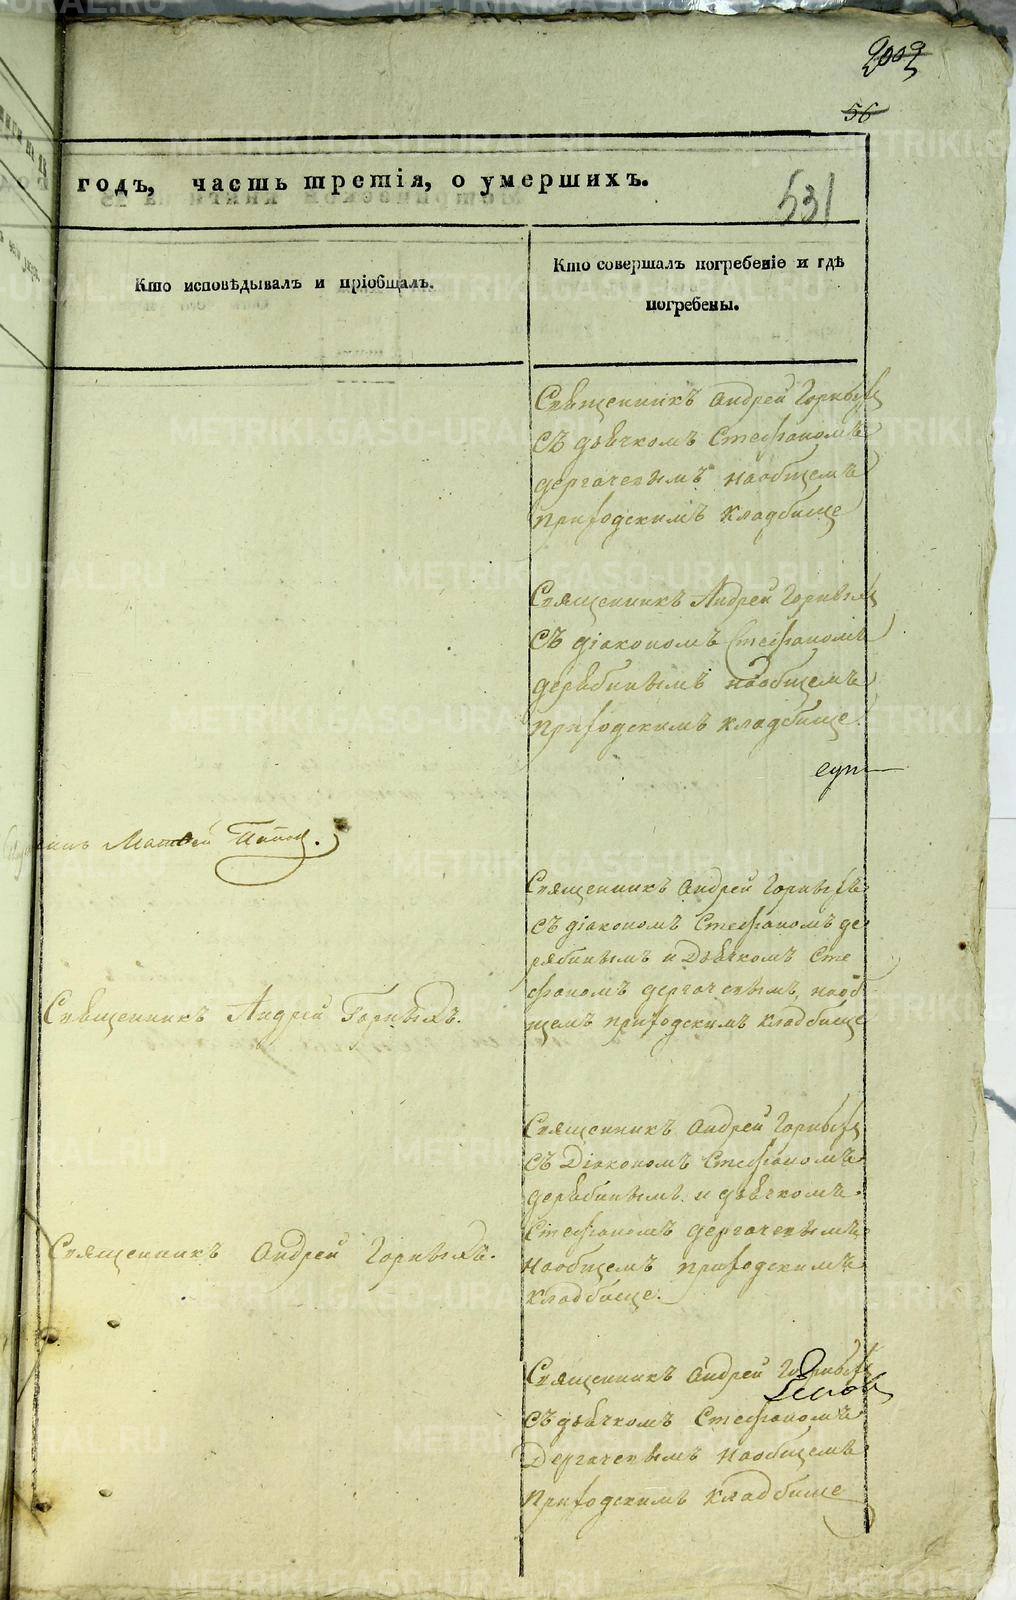 56
годъ, часть третія, о умершихъ.
531
Кто исповѣдывалъ и пріобщалъ.
Кто совершалъ погребеніе и гдѣ
погребены.
Священникъ Андрей Горныхъ
съ дьячкомъ Стефаномъ
дергачевымъ наобщемъ
приходскимъ кладбище
Священникъ Андрей Горныхъ
съ діакономъ Стефаномъ
дерябинымъ наобщемъ
приходскимъ кладбище.
Матвей
Священникъ Андрей Горныхъ
съ діакономъ Стефаномъ де
рябинымъ и Дьячкомъ Сте
фаномъ дергачевымъ, наоб
щемъ приходскимъ кладбище
Священникъ Андрей Горныхъ.
Священникъ Андрей Горныхъ
съ Діакономъ Стефаномъ
дерябинымъ и дьячкомъ
Стефаномъ дергачевымъ
наобщемъ приходскимъ
кладбище.
Священникъ Андрей Горныхъ.
Священникъ Андрей Горныхъ
съ дьячкомъ Стефаномъ
Дергачевымъ наобщемъ
приходскимъ кладбище
METRIKI.GASO-URAL.RU